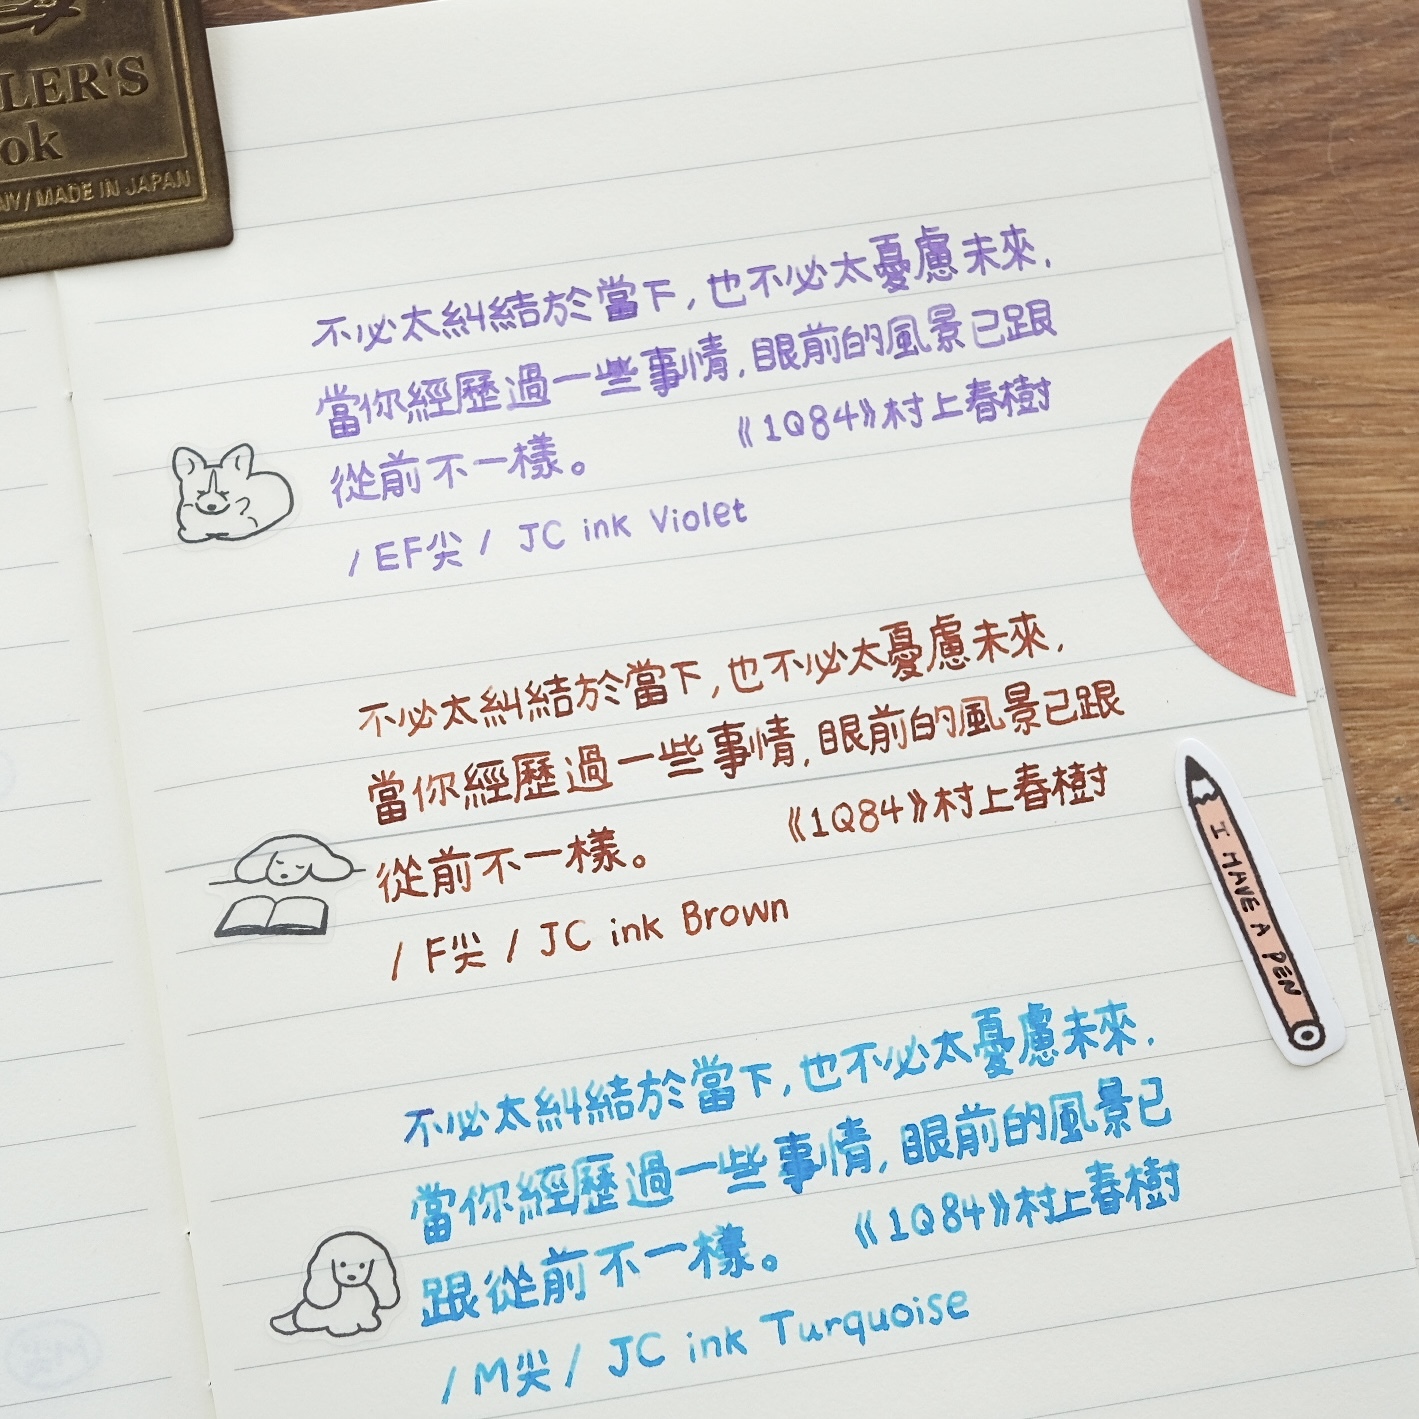 LER'S
ok
NY/MADE IN JAPAN
不必太糾結於當下,也不必太憂慮未來,
當你經歷過一些事情,眼前的風景已跟
從前不一樣。 《1Q84》村上春樹
/ EF尖 / JC ink Violet
不必太糾結於當下,也不必太憂慮未來,
當你經歷過一些事情,眼前的風景已跟
從前不一樣。 《1Q84》村上春樹
/ F尖 / JC ink Brown
I HAVE A PEN
不必太糾結於當下,也不必太憂慮未來,
當你經歷過一些事情,眼前的風景已
跟從前不一樣。 《1Q84》村上春樹
/ M尖 / JC ink Turquoise